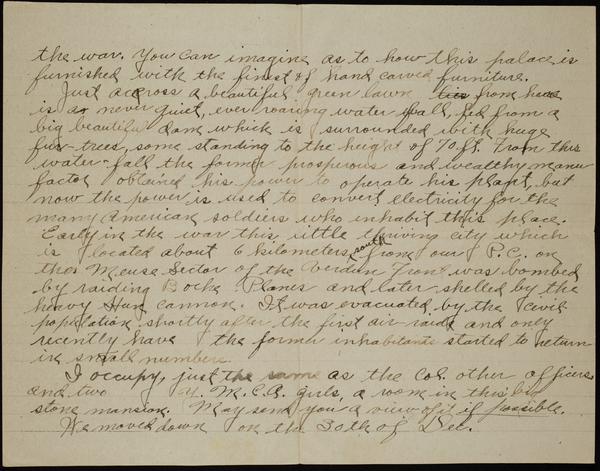 the war. You can imagine as to how this palace is
furnished with the finest of hand carved furniture.
Just accross a beautiful green lawn from here
is a never quiet, ever roaring water fall, fed from a
big beautiful dam which is surrounded with huge
fur-trees, some standing to the height of 70 ft. From this
water-fall the former prosperous and wealthy manu
factor obtained his power to operate his plant, but
now the power is used to convert electricity for the
many American soldiers who inhabit this place.
Early in the war this little thriving city which
is located about 6 kilometers south from our P.C. on
the Meuse Sector of the Verdun Front was bombed
by raiding Boche Planes and later shelled by the
heavy Hun cannon. It was evacuated by the civil
population shortly after the first air raids and only
recently have the former inhabitants started to return
in small numbers.
I occupy, just the same as the Col. other officers
and two Y.M.C.A. girls, a room in this big
stone mansion. May send you a view of it if possible.
We moved down on the 30th of Dec.